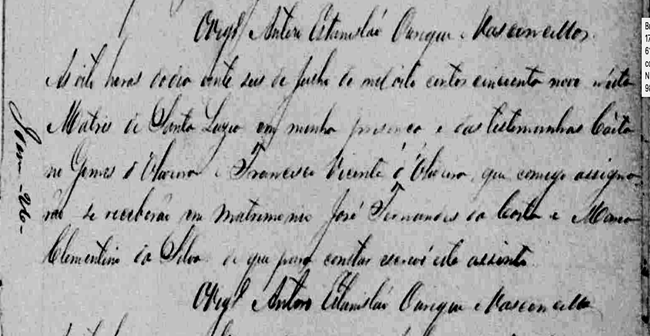 O Vigº Antero Estanisláo Ourique Vasconcellos
As oito horas do dia vinte seis de Julho de mil oito centos cincoenta nove nesta
Matris de Santa Luzia em minha presença e das testimunhas Caeta
no Gomes d'Oliveira e Francisco Vicente d'Oliveira, que comigo assigna
rão se receberão em matrimonio José Fernandes da Costa e Maria
Clementina da Silva de que para constar escrevi este assento
O Vigº Antero Estanisláo Ourique Vasconcellos